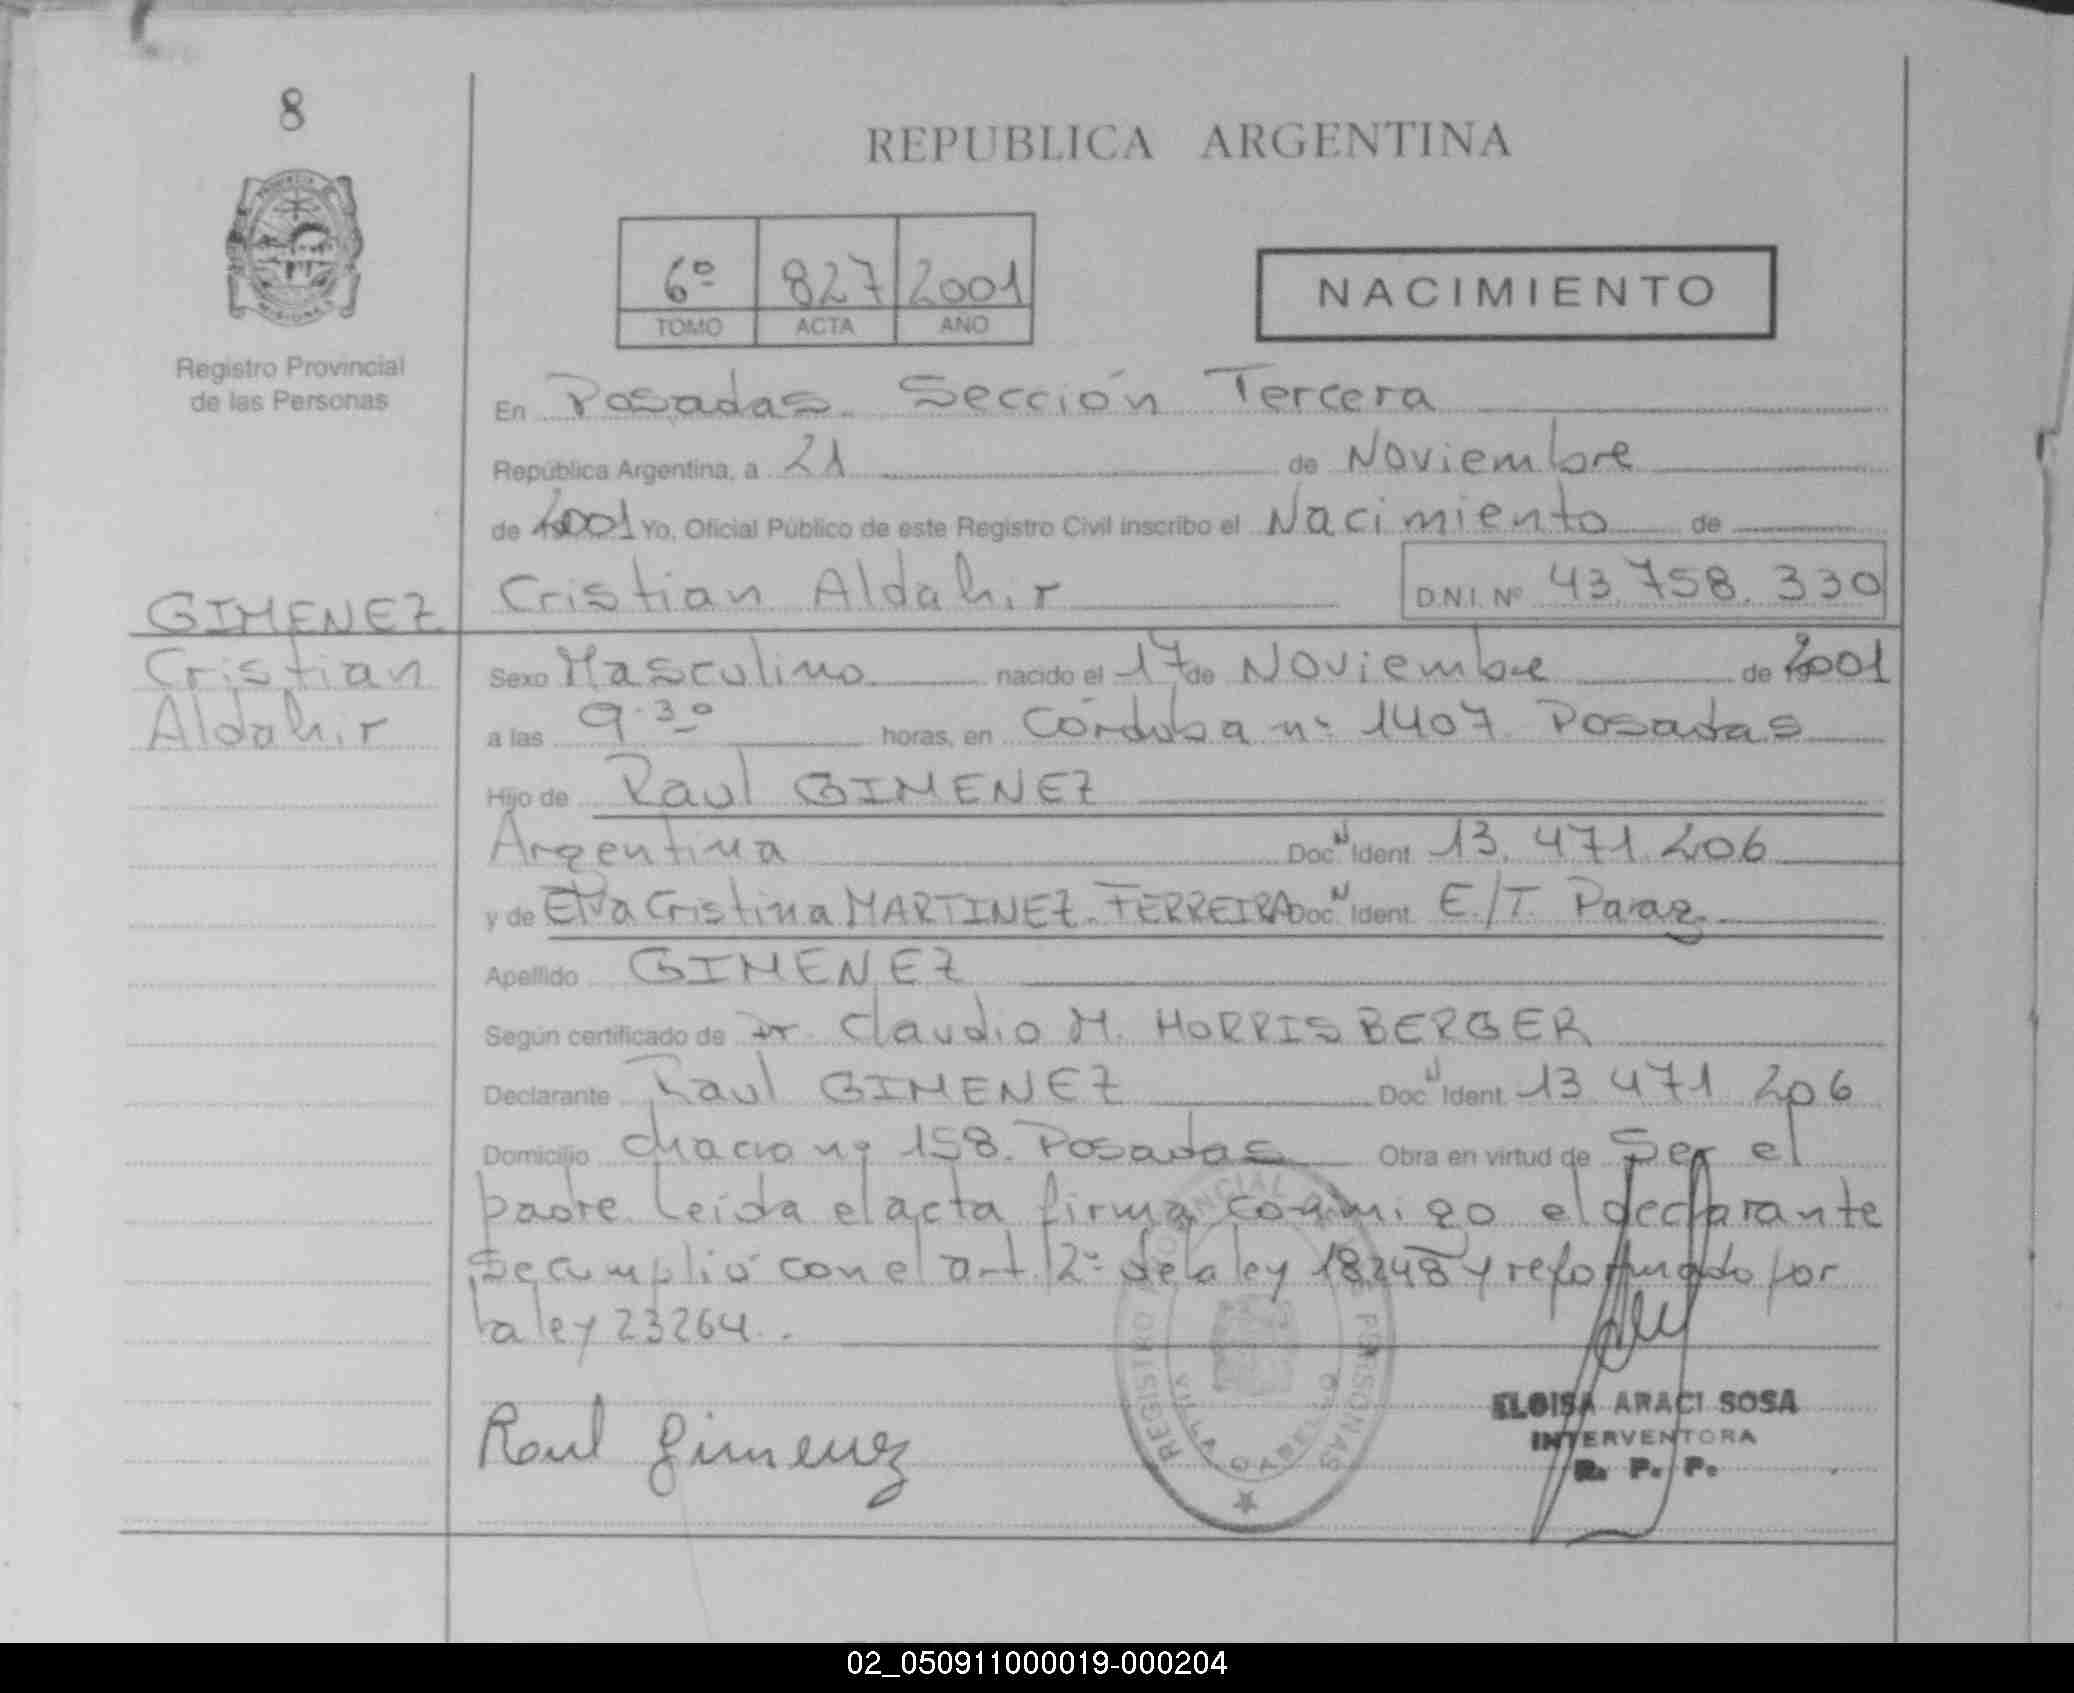 8
REPUBLICA ARGENTINA
6º 827 2001
TOMO ACTA AÑO
NACIMIENTO
Registro Provincial
de las Personas
En Posadas. Sección Tercera
República Argentina, a 21 de Noviembre
de 2001 Yo, Oficial Público de este Registro Civil inscribo el Nacimiento de
GIMENEZ Cristian Aldahir D.N.I. Nº 43.758.330
Cristian Sexo Masculino nacido el 17 de Noviembre de 2001
Aldahir a las 9.30 horas, en Córdoba nº 1407 Posadas
Hijo de Raul GIMENEZ
Argentina Doc. N Ident. 13.471.206
y de Cristina MARTINEZ FERREIRA Doc. N Ident. E./T. Parag.
Apellido GIMENEZ
Según certificado de Dr. Claudio M. MORRISBERGER
Declarante Raul GIMENEZ Doc. N Ident. 13 471 206
Domicilio nº 158. Posadas Obra en virtud de Ser el
padre. Leida el acta firma conmigo el declarante
Se cumplió con el art. 2º de la ley 18248 y reformado por
la ley 23264.
REGISTRO PROVINCIAL DE LAS PERSONAS
VILLA CABELLO
Raul Gimenez
ELOISA ARACI SOSA
INTERVENTORA
R. P. P.
02_050911000019-000204